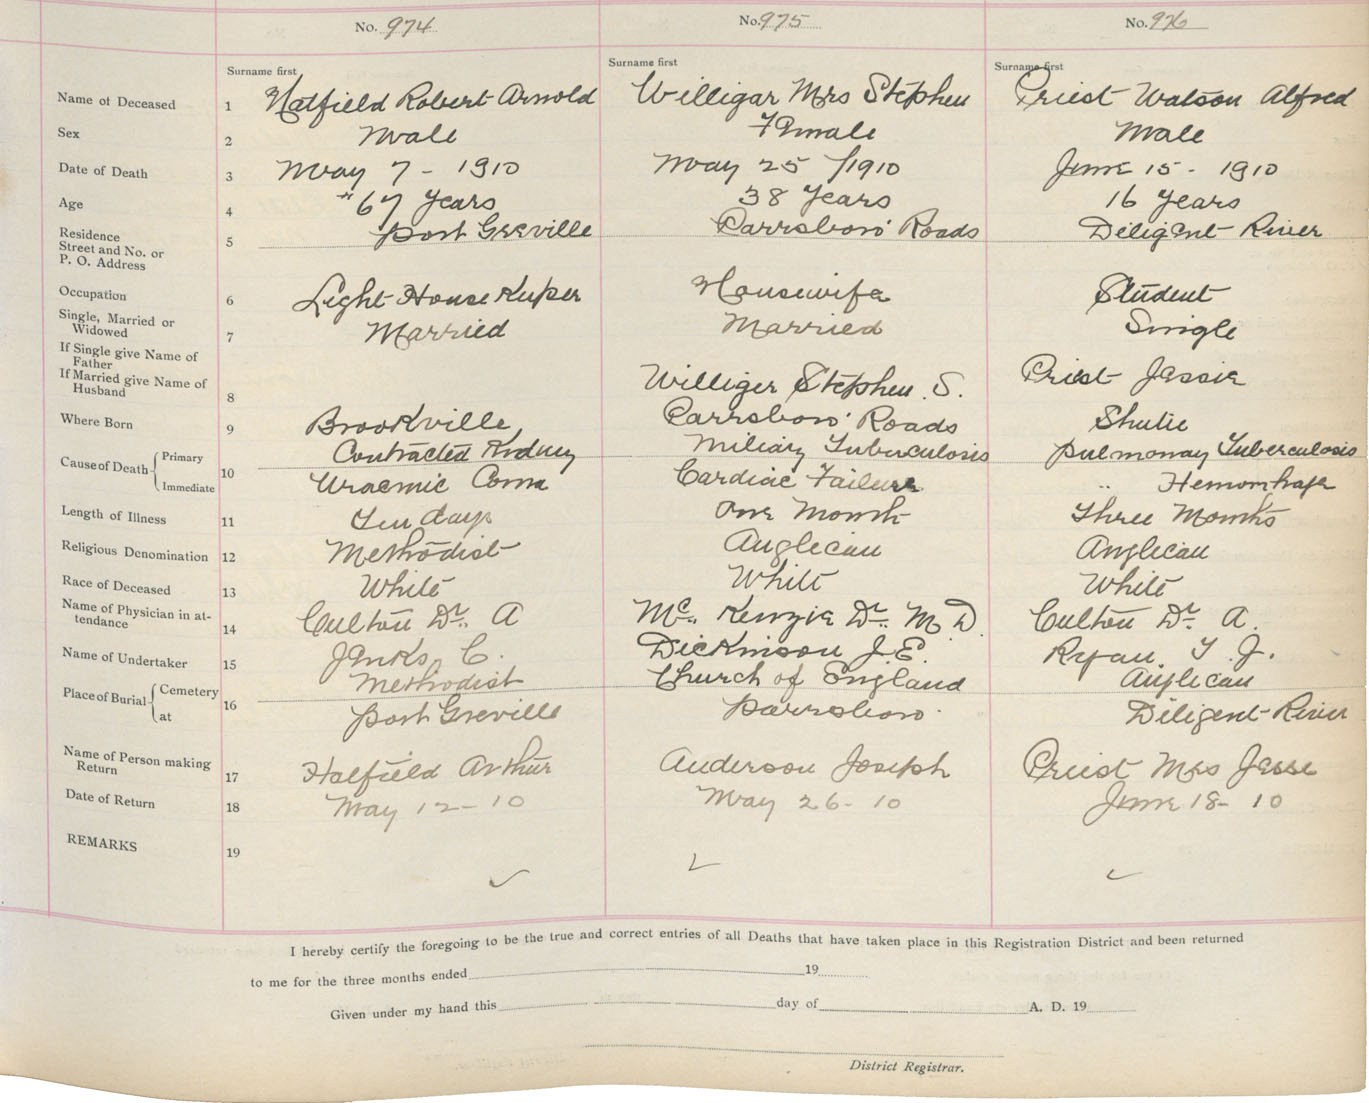 No. 974 No. 975 No. 976
Surname first Surname first Surname first
Name of Deceased 1 Hatfield Robert Arnold Willigar Mrs Stephen Priest Watson Alfred
Sex 2 Male Female Male
Date of Death 3 May 7 - 1910 May 25 /1910 June 15 - 1910
Age 4 "67 Years 38 Years 16 Years
Residence Street and No. or P. O. Address 5 Port Greville Parrsboro' Roads Diligent River
Occupation 6 Light House Keeper Housewife Student
Single, Married or Widowed 7 Married Married Single
If Single give Name of Father
If Married give Name of Husband 8 Williger Stephen S. Priest Jessie
Where Born 9 Brookville Parrsboro' Roads Shulie
Cause of Death Primary Contracted Kidney Miliary Tuberculosis Pulmonay Tuberculosis
10
Immediate Uraemic Coma Cardiac Failure " Hemorrhage
Length of Illness 11 Ten days One Month Three Months
Religious Denomination 12 Methodist Anglican Anglican
Race of Deceased 13 White White White
Name of Physician in attendance 14 Culton Dr. A McKenzie Dr. M. D. Culton Dr. A.
Name of Undertaker 15 Jenks, C. Dickinson J. E. Ryan, T. J.
Place of Burial Cemetery Methodist Church of England Anglican
16
at Port Greville Parrsboro Diligent River
Name of Person making Return 17 Hatfield Arthur Anderson Joseph Priest Mrs Jesse
Date of Return 18 May 12 - 10 May 26 - 10 June 18 - 10
REMARKS 19
I hereby certify the foregoing to be the true and correct entries of all Deaths that have taken place in this Registration District and been returned
to me for the three months ended 19
Given under my hand this day of A. D. 19
District Registrar.